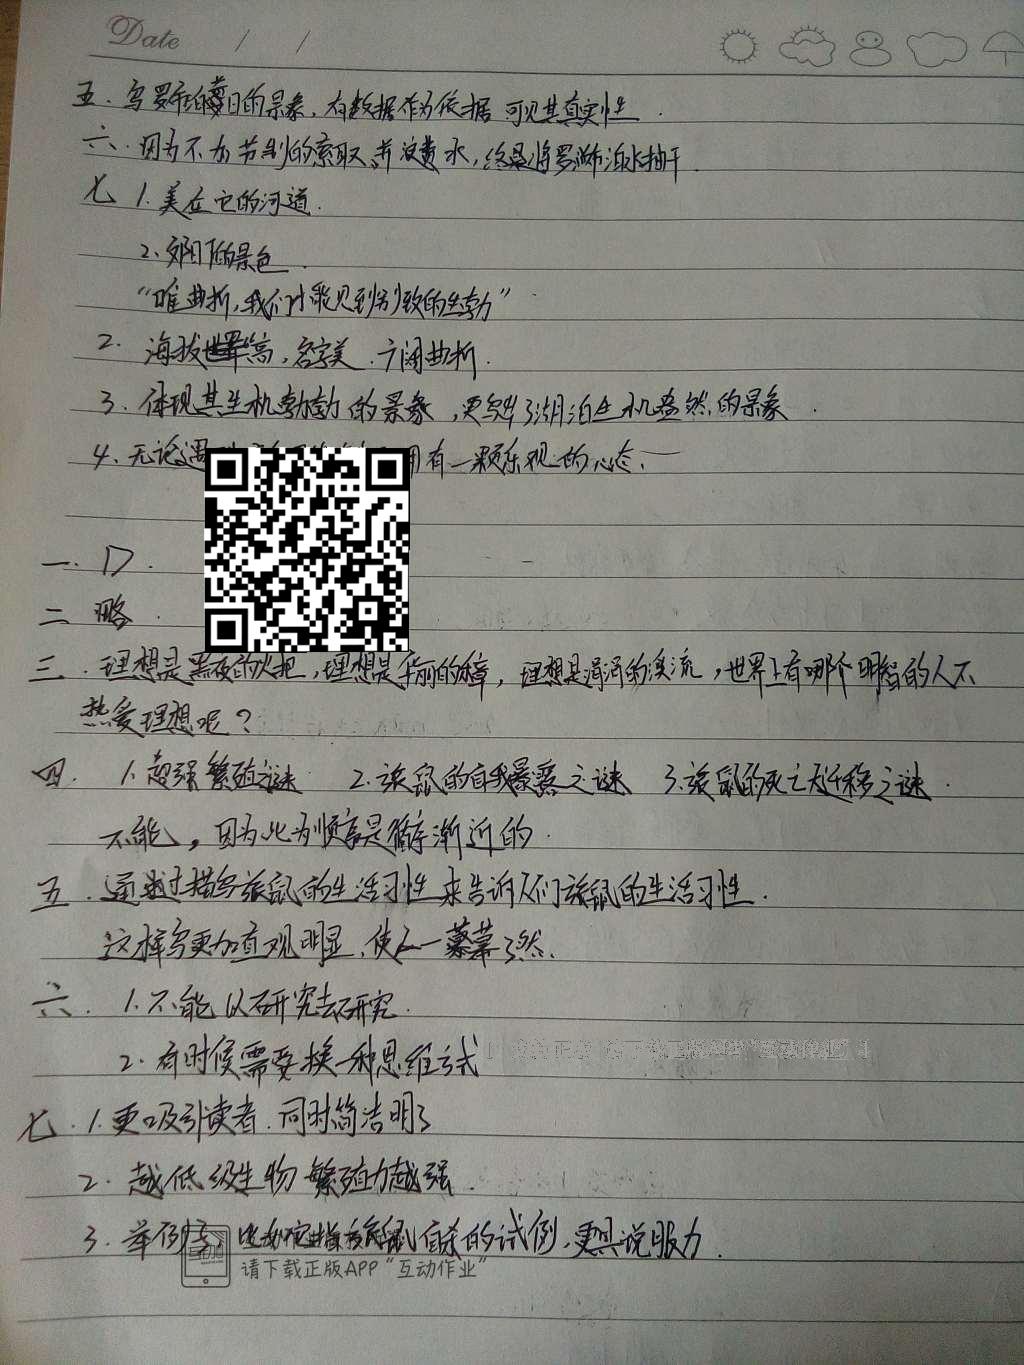 Date / /
五. 写罗布泊昔日的景象, 有数据作为依据 可见其真实性.
六. 因为不加节制的索取, 并浪费水, 终是将罗布泊水抽干.
七 1. 美在它的河道.
2. 夕阳下的景色.
“唯曲折, 我们才能见到别致的生动”
2. 海拔世界高, 名字美. 广阔曲折.
3. 体现其生机勃勃的景象, 更突出了湖泊生机盎然的景象.
4. 无论遇 拥有一颗乐观的心态.
一. D.
二 略.
三. 理想是黑夜的火把, 理想是华丽的 章, 理想是涓涓的溪流, 世界上有哪个明智的人不
热爱理想呢?
四. 1. 超强繁殖之谜 2. 旅鼠的自我暴露之谜 3. 旅鼠的死亡大迁移之谜.
不能, 因为此为顺序是循序渐近的.
五. 通过描写旅鼠的生活习性来告诉人们旅鼠的生活习性.
这样写更加直观明显, 使人一幕了然.
六. 1. 不能以研究去研究.
2. 有时候需要换一种思维方式
七. 1. 更吸引读者. 同时简洁明了
2. 越低级生物 繁殖力越强.
3. 举例 旅鼠自杀的试例, 更具说服力.
请下载正版APP“互动作业”